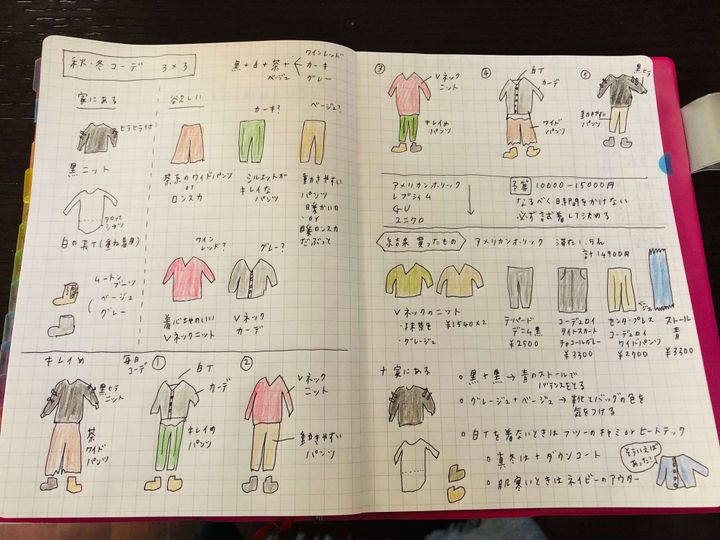 秋・冬コーデ 3×3
黒+白+茶+
ベージュ
ワインレッド
カーキ
グレー
家にある
ヒラヒラ付
黒ニット
白の長T(重ね着用)
ムートン
ブーツ
ベージュ
グレー
欲しい
カーキ?
ベージュ?
茶系のワイドパンツ
or
ロンスカ
シルエットが
キレイな
パンツ
動きやすい
パンツ
暖かいの
or
暖ロンスカ
だぶって
ワイン
レッド?
グレー?
着心地のいい
Vネックニット
Vネック
カーデ
キレイめ
黒ヒラ
ニット
茶
ワイド
パンツ
毎日
コーデ
①
白T
カーデ
キレイめ
パンツ
②
Vネック
ニット
動きやすい
パンツ
③
Vネック
ニット
キレイめ
パンツ
④
白T
カーデ
ワイド
パンツ
⑤
黒ヒラ
動きやすい
パンツ
アメリカンホリック
レプシィム
GU
ユニクロ
予算 10000-15000円
なるべく時間をかけない
必ず試着して決める
結果買ったもの
アメリカンホリック
計14900円
Vネックのニット
・抹茶色
・グレージュ
¥1540×2
テーパード
デニム黒
¥2500
コーデュロイ
タイトスカート
チャコールグレー
¥3300
センタープレス
コーデュロイ
ワイドパンツ
¥2700
ストール
青
¥3300
+家にある
○ 黒+黒→青のストールで
バランスをとる
○ グレージュ+ベージュ→靴とバッグの色を
気をつける
○ 白Tを着ないときはフツーのキャミorヒートテック
○ 真冬は+ダウンコート
○ 肌寒いときはネイビーのアウター
そういえば
あった!